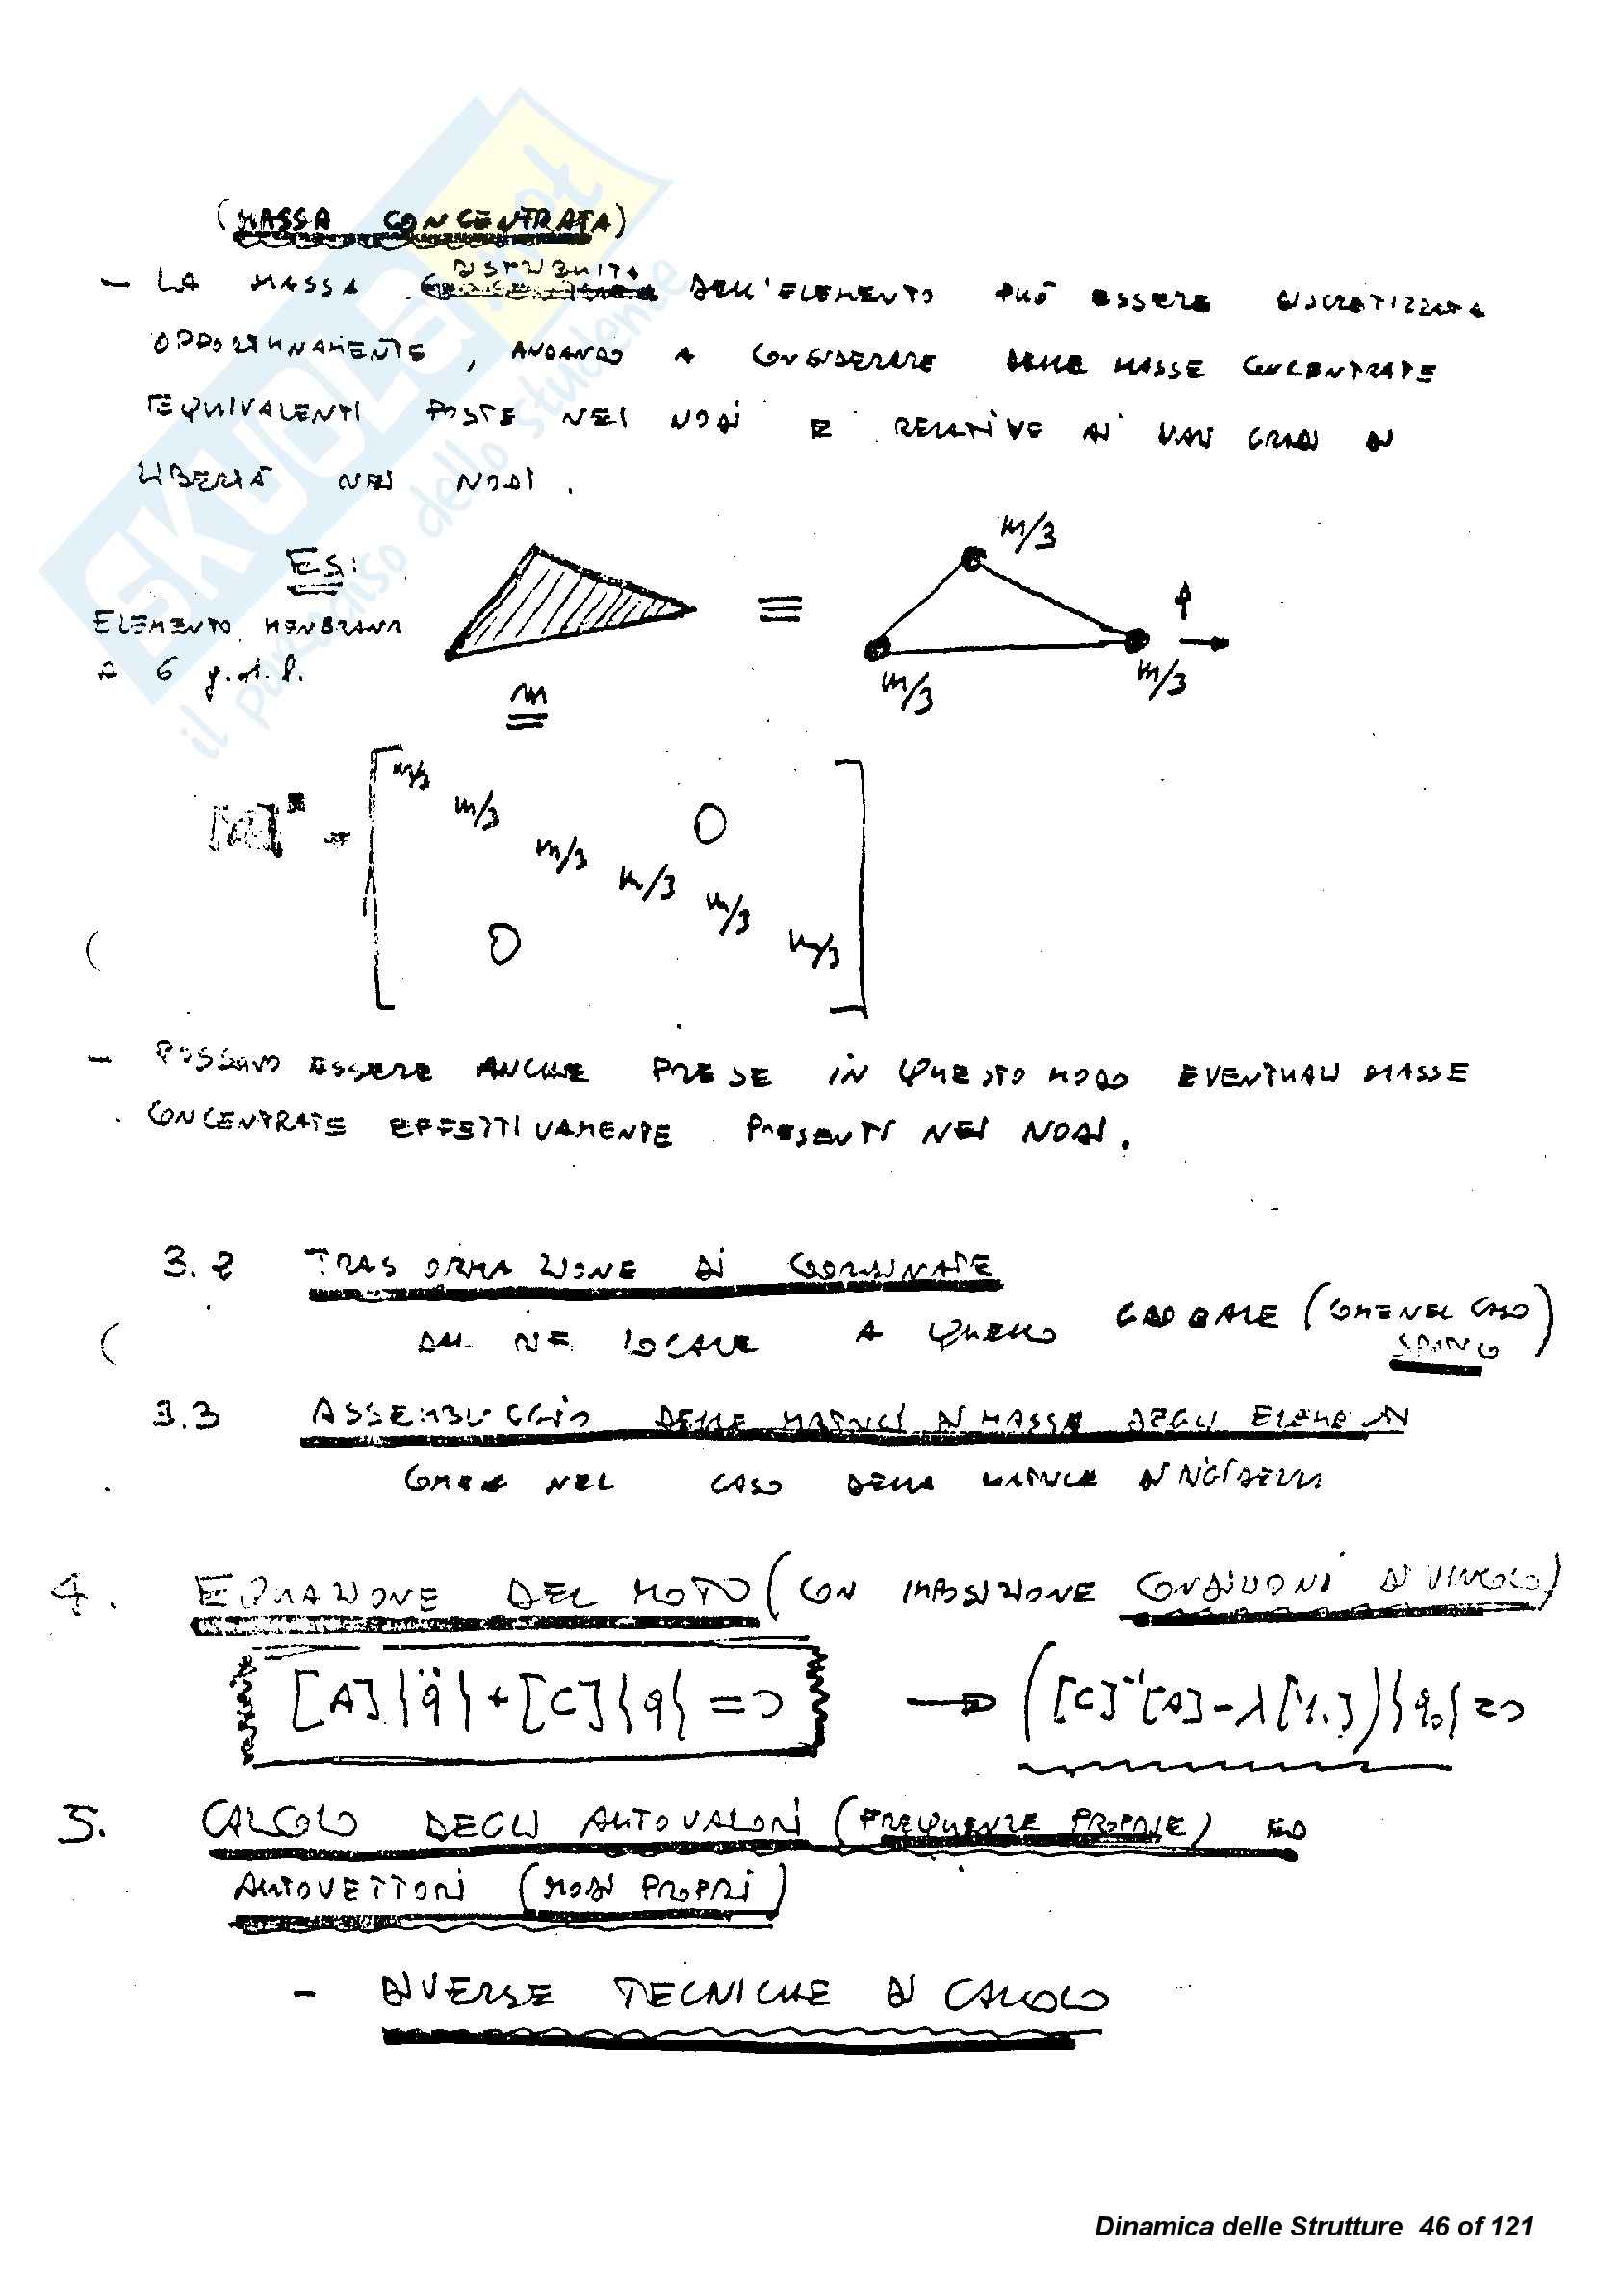 (MASSA CONCENTRATA)
- LA MASSA DISTRIBUITA DELL'ELEMENTO PUÒ ESSERE DISCRETIZZATA
OPPORTUNAMENTE, ANDANDO A CONSIDERARE DELLE MASSE CONCENTRATE
EQUIVALENTI POSTE NEI NODI E RELATIVE AI VARI GRADI DI
LIBERTÀ NEI NODI.
ES:
ELEMENTO MEMBRANA
A 6 g.d.l.
m
≡
m/3
m/3
m/3
=
m/3
m/3
m/3
m/3
m/3
m/3
0
0
- POSSONO ESSERE ANCHE PRESE IN QUESTO MODO EVENTUALI MASSE
CONCENTRATE EFFETTIVAMENTE PRESENTI NEI NODI.
3.2 TRASFORMAZIONE DI COORDINATE
DAL RIF. LOCALE A QUELLO GLOBALE (COME NEL CASO
3.3 ASSEMBLAGGIO DELLE MATRICI DI MASSA DEGLI ELEMENTI
COME NEL CASO DELLA MATRICE DI RIGIDEZZA
4. EQUAZIONE DEL MOTO (CON IMPOSIZIONE CONDIZIONI DI VINCOLO)
[A]{q̈}+[C]{q}=0 → ([C]⁻¹[A]-λ[1.]){q₀}=0
5. CALCOLO DEGLI AUTOVALORI (FREQUENZE PROPRIE) ED
AUTOVETTORI (MODI PROPRI)
- DIVERSE TECNICHE DI CALCOLO
SKUOLA.net
il paradiso dello studente
Dinamica delle Strutture 46 of 121